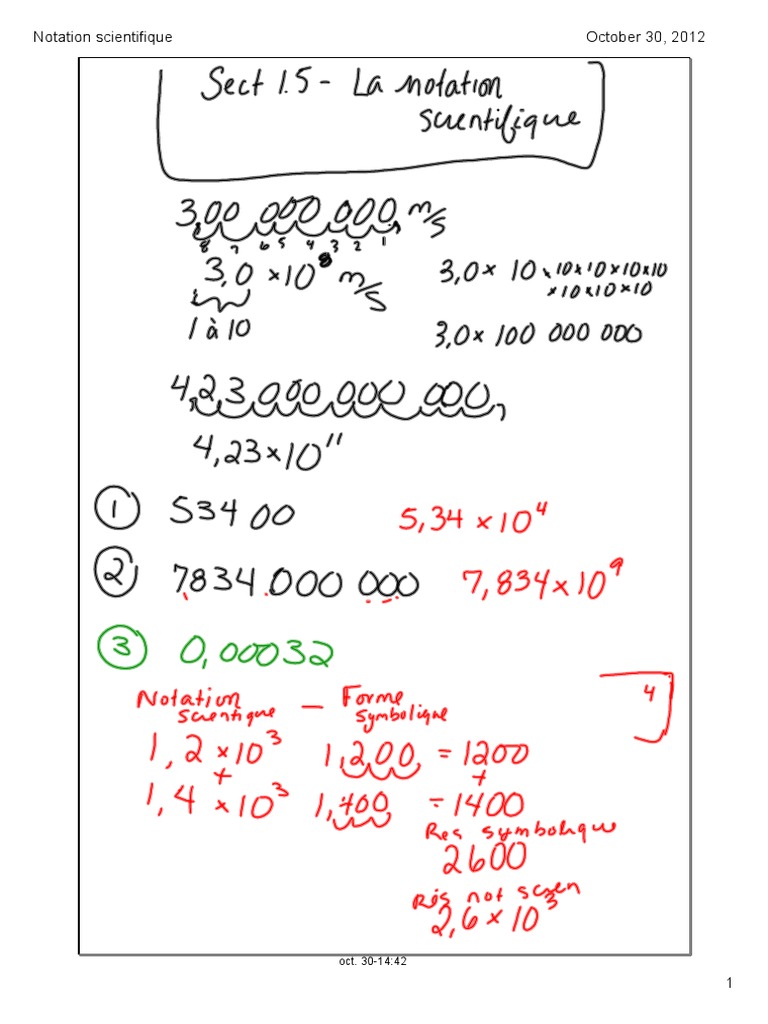 Notation scientifique October 30, 2012
Sect 1.5 - La notation
scientifique
3,00 000 000, m/s
8 7 6 5 4 3 2 1
3,0 × 10⁸ m/s 3,0 × 10 × 10 × 10 × 10 × 10
× 10 × 10 × 10
1 à 10 3,0 × 100 000 000
4,23,000 000 000,
4,23 × 10¹¹
① 534 00 5,34 × 10⁴
② 7,834 000 000 7,834 × 10⁹
③ 0,00032
Notation — Forme 4
scientique symbolique
1,2 × 10³ 1,200, = 1200
+ +
1,4 × 10³ 1,400, = 1400
Res symbolique
2600
Rés not scien
2,6 × 10³
oct. 30-14:42
1